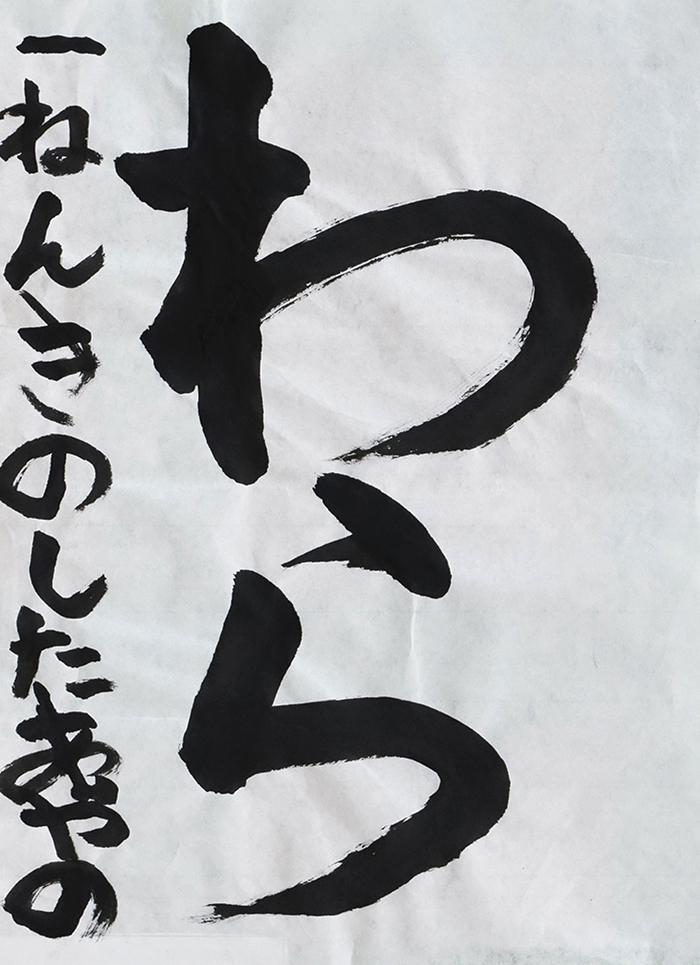 わら
一ねんきのしたあやの